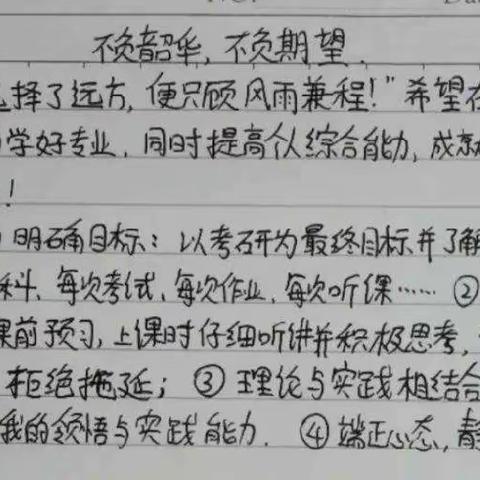 不负韶华,不负期望.
择了远方,便只顾风雨兼程!"希望在
学好专业,同时提高个人综合能力,成就
!
明确目标:以考研为最终目标并了解
科、每次考试、每次作业、每次听课……②
课前预习,上课时仔细听讲并积极思考,
拒绝拖延;③理论与实践相结合
我的领悟与实践能力.④端正心态,静